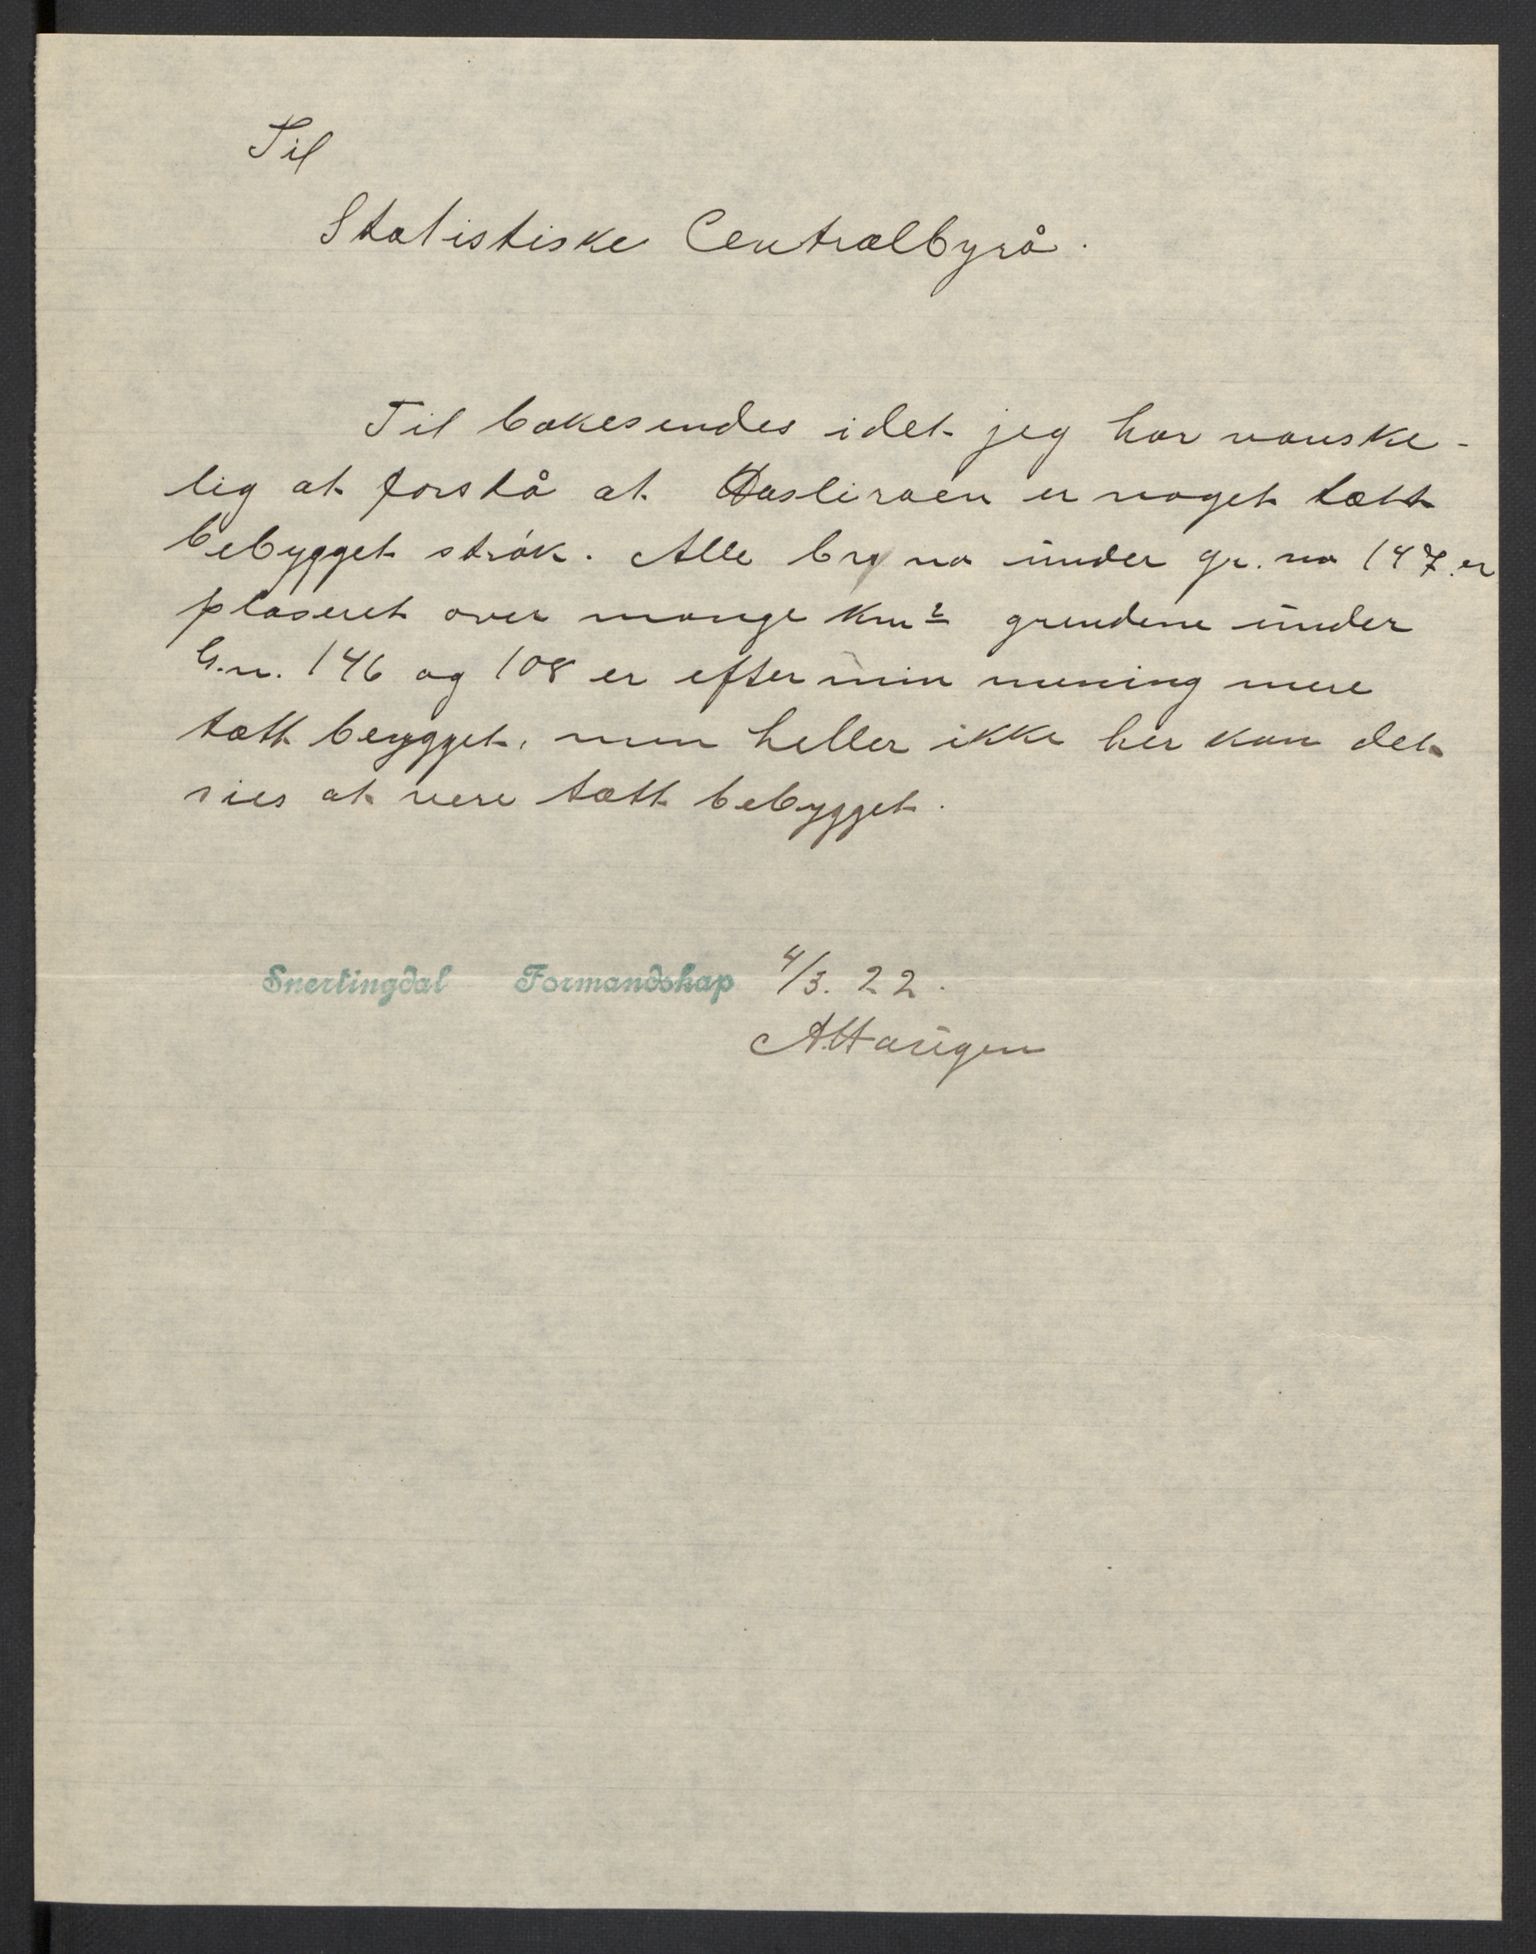 Til
Statistiske Centralbyrå.
Til bakesendes idet jeg har vanske-
lig at forstå at er noget tætt
bebygget strøk. Alle br no under gr. no 147. er
plaseret over mange km² grendene under
G.n. 146 og 108 er efter min mening mere
tætt beygget, men heller ikke her kan det
sies at vere tætt bebygget.
Snertingdal Formandskap 4/3. 22.
A. Haugen